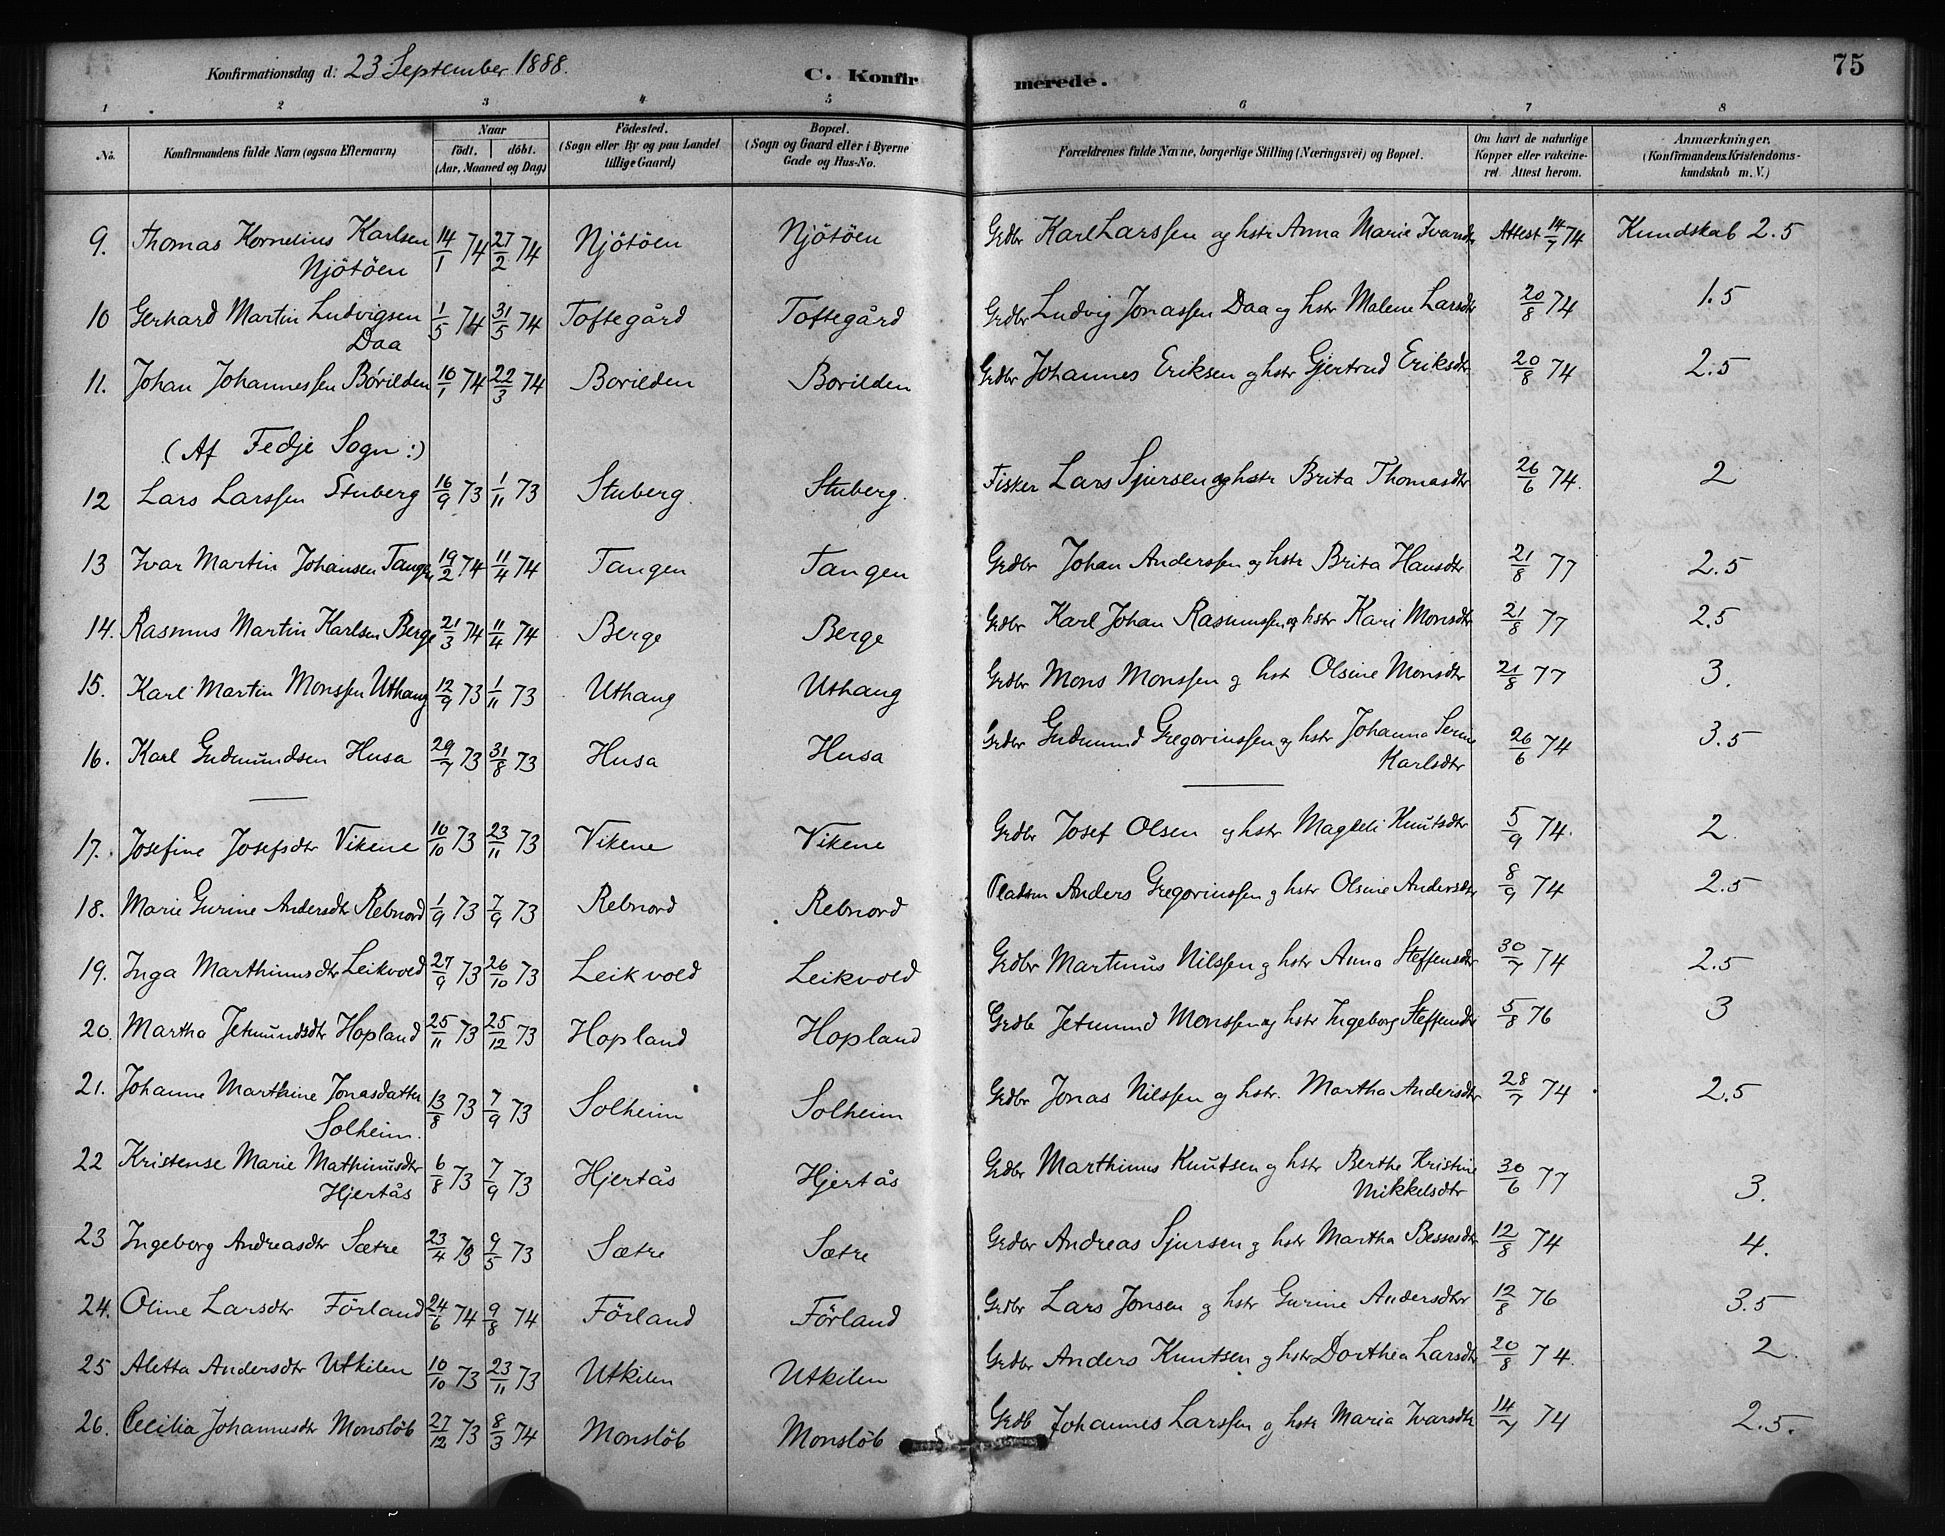 Konfirmationsdag d: 23 September 1888.
C. Konfirmerede.
75
1 2 3 4 5 6 7 8
No. Konfirmandens fulde Navn (ogsaa Efternavn) Naar födt. döbt. (Aar, Maaned og Dag) Födested. (Sogn eller By og paa Landet tillige Gaard) Bopæl. (Sogn og Gaard eller i Byerne Gade og Hus-No. Forældrenes fulde Navne, borgerlige Stilling (Næringsvei) og Bopæl. Om havt de naturlige Kopper eller vakcineret. Attest herom. Anmærkninger. (Konfirmandens Kristendomskundskab m. V.)
9. Thomas Kornelius Karlsen Njötöen 14/1 74 27/2 74 Njötöen Njötöen Grdbr Karl Larssen og hstr Anna Marie Ivarsdtr Attest 14/7 74 Kundskab 2.5
10 Gerhard Martin Ludvigsen Daa 1/5 74 31/5 74 Toftegård Toftegård Grdbr Ludvig Jonassen Daa og hstr Malene Larsdtr 20/8 74 1.5
11. Johan Johannessen Börilden 10/1 74 22/3 74 Borilden Borilden Grdbr Johannes Eriksen og hstr Gjertrud Eriksdtr 20/8 74 2.5
(Af Fedje Sogn:)
12 Lars Larssen Stuberg 16/9 73 1/11 73 Stuberg. Stuberg. Fisker Lars Sjursen og hstr Brita Thomasdtr 26/6 74. 2
13 Ivar Martin Johansen Tangen 19/2 74 11/4 74 Tangen Tangen Grdbr Johan Anderssen og hstr Brita Hansdtr 21/8 77 2.5
14. Rasmus Martin Karlsen Berge 21/3 74 11/4 74 Berge Berge Grdbr Karl Johan Rasmussen og hstr Kari Monsdtr 21/8 77 2.5
15. Karl Martin Monssen Uthaug 12/9 73 1/11 73 Uthaug Uthaug Grdbr Mons Monssen og hst Olsine Monsdtr 21/8 77 3.
16. Karl Gudmundsen Husa 29/7 73 31/8 73 Husa Husa Grdbr Gudmund Gregoriussen og hstr Johanna Serine Karlsdtr 26/6 74 3.5
17. Josefine Josefsdtr Vikene 10/10 73 23/11 73 Vikene Vikene Grdbr Josef Olsen og hstr Magdeli Knutsdtr 5/9 74. 2.
18. Marie Gurine Andersdtr Rebnord 1/9 73 7/9 73 Rebnord Rebnord Pladsm Anders Gregoriussen og hstr Olsine Andersdtr 8/9 74 2.5
19. Inga Marthinusdtr Leikvold 27/9 73 26/10 73 Leikvold Leikvold Grdbr Martinus Nilssen og hstr Anna Steffensdtr 30/7 74 2.5
20. Martha Jetmundsdtr Hopland 25/11 73 25/12 73 Hopland Hopland Grdb Jetmund Monssen og hstr Ingeborg Steffensdtr 5/8 76 3
21. Johanne Marthine Jonasdatter Solheim. 13/8 73 7/9 73 Solheim Solheim Grdbr Jonas Nilssen og hstr. Martha Andersdtr 28/7 74 2.5
22 Kristense Marie Mathinusdtr Hjertås 6/8 73 7/9 73 Hjertås Hjertås Grdbr Marthinus Knutsen og hstr Berthe Kristine Mikkelsdtr 30/6 77 3.
23 Ingeborg Andreasdtr Sætre 23/4 73 9/5 73 Sætre Sætre Grdbr Andreas Sjursen og hstr Martha Bessesdtr 12/8 74 4.
24. Oline Larsdtr Förland 24/6 74 9/8 74 Förland Förland Grdbr Lars Jonsen og hstr Gurine Andersdtr 12/8 76 3.5
25 Aletta Andersdtr Utkilen 10/10 73 23/11 73 Utkilen Utkilen Grdbr Anders Knutsen og hstr Dorthea Larsdtr 20/8 74. 2.
26. Cecilia Johannesdtr Monslöb 27/12 73 8/3 74 Monslöb Monslöb Grdb Johannes Larssen og hstr Maria Ivarsdtr 14/7 74 2.5.